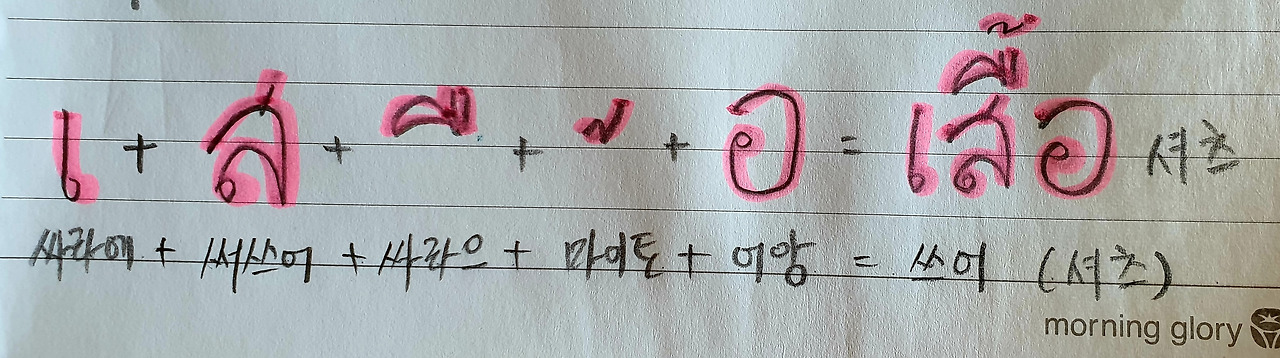 เ + ส + ื + ้ + อ = เสื้อ 셔츠
싸라에 + 써쓰어 + 싸라으 + 마이토 + 어앙 = 쓰어 (셔츠)
morning glory